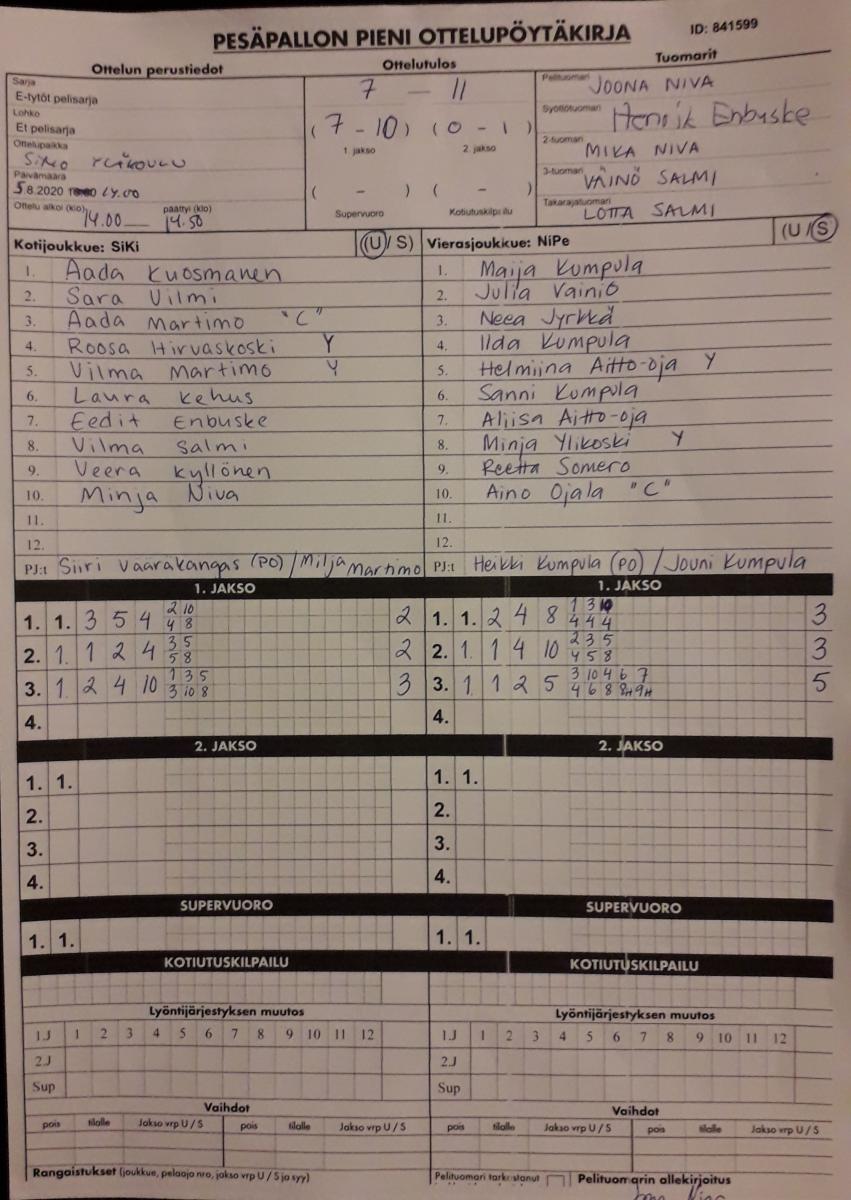 PESÄPALLON PIENI OTTELUPÖYTÄKIRJA ID: 841599
Ottelun perustiedot Ottelutulos Tuomarit
Sarja
E-tytöt pelisarja
Lohko
Et pelisarja
Ottelupaikka
SIMO YLÄKOULU
Päivämäärä
5.8.2020 14.00
Ottelu alkoi (klo) päättyi (klo)
14.00 14.50
7 - 11
(7 - 10) (0 - 1)
1. jakso 2. jakso
( - ) ( - )
Supervuoro Kotiutuskilpailu
Pelituomari JOONA NIVA
Syöttötuomari Henrik Enbuske
2-tuomari MIKA NIVA
3-tuomari VÄINÖ SALMI
Takarajatuomari LOTTA SALMI
Kotijoukkue: SiKi (U/S)
1. Aada Kuosmanen
2. Sara Vilmi
3. Aada Martimo "C"
4. Roosa Hirvaskoski Y
5. Vilma Martimo Y
6. Laura Kehus
7. Eedit Enbuske
8. Vilma Salmi
9. Veera Kyllönen
10. Minja Niva
11.
12.
PJ:t Siiri Vaarakangas (PO) / Milja Martimo
Vierasjoukkue: NiPe (U/S)
1. Maija Kumpula
2. Julia Vainio
3. Neea Jyrkkä
4. Ilda Kumpula
5. Helmiina Aitto-oja Y
6. Sanni Kumpula
7. Aliisa Aitto-oja
8. Minja Ylikoski Y
9. Reetta Somero
10. Aino Ojala "C"
11.
12.
PJ:t Heikki Kumpula (PO) / Jouni Kumpula
1. JAKSO 1. JAKSO
1. 1. 3 5 4 2 10 2
4 8
2. 1. 1 2 4 3 5 2
5 8
3. 1. 2 4 10 1 3 5 3
3 10 8
4.
1. 1. 2 4 8 1 3 10 3
4 4 4
2. 1. 1 4 10 2 3 5 3
4 5 8
3. 1. 1 2 5 3 10 4 6 7 5
4 6 8 8H 9H
4.
2. JAKSO 2. JAKSO
1. 1. 1. 1.
2. 2.
3. 3.
4. 4.
SUPERVUORO SUPERVUORO
1. 1. 1. 1.
KOTIUTUSKILPAILU KOTIUTUSKILPAILU
Lyöntijärjestyksen muutos Lyöntijärjestyksen muutos
1J 1 2 3 4 5 6 7 8 9 10 11 12 1J 1 2 3 4 5 6 7 8 9 10 11 12
2J 2J
Sup Sup
Vaihdot Vaihdot
pois tilalle Jakso vrp U / S pois tilalle Jakso vrp U / S pois tilalle Jakso vrp U / S pois tilalle Jakso vrp U / S
Rangaistukset (joukkue, pelaaja nro, jakso vrp U / S ja syy) Pelituomari tarkistanut Pelituomarin allekirjoitus